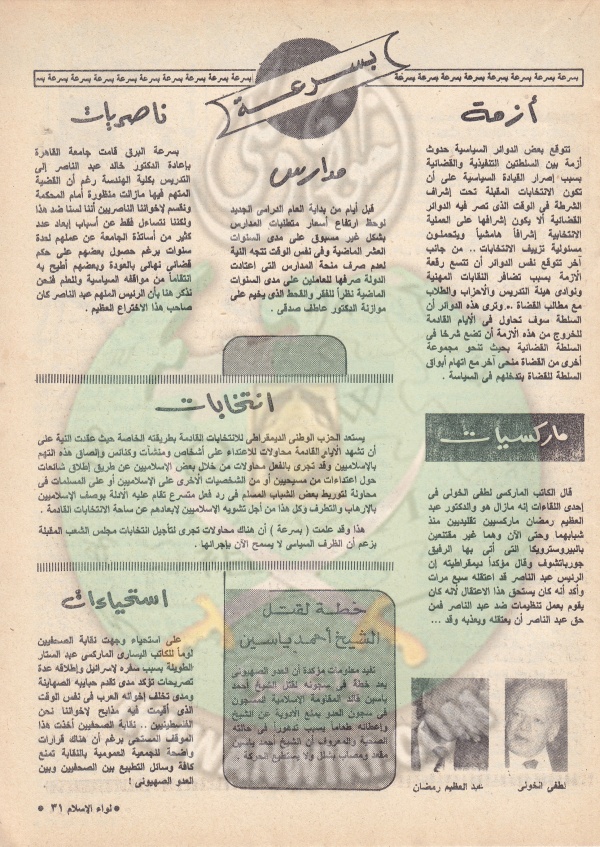 بسرعة
بسرعة بسرعة بسرعة بسرعة بسرعة بسرعة بسرعة بسرعة بسرعة
أزمة
تتوقع بعض الدوائر السياسية حدوث
أزمة بين السلطتين التنفيذية والقضائية
بسبب إصرار القيادة السياسية على أن
تكون الانتخابات المقبلة تحت إشراف
الشرطة في الوقت الذى تصر فيه الدوائر
القضائية ألا يكون إشرافها على العملية
الانتخابية إشرافاً هامشياً ويتحملون
مسئولية تزييف الانتخابات .. من جانب
آخر تتوقع نفس الدوائر أن تتسع رقعة
الأزمة بسبب تضافر النقابات المهنية
ونوادى هيئة التدريس والأحزاب والطلاب
مع مطالب القضاة .. وترى هذه الدوائر أن
السلطة سوف تحاول فى الأيام القادمة
للخروج من هذه الأزمة أن تضع شرخا فى
السلطة القضائية بحيث تنحو مجموعة
أخرى من القضاة منحى آخر مع اتهام أبواق
السلطة للقضاة بتدخلهم فى السياسة .
مدارس
قبل أيام من بداية العام الدراسى الجديد
لوحظ ارتفاع أسعار متطلبات المدارس
بشكل غير مسبوق على مدى السنوات
العشر الماضية وفى نفس الوقت تتجه النية
لعدم صرف منحة المدارس التى اعتادت
الدولة صرفها للعاملين على مدى السنوات
الماضية نظراً للفقر والقحط الذى يخيم على
موازنة الدكتور عاطف صدقى .
ناصريات
بسرعة البرق قامت جامعة القاهرة
بإعادة الدكتور خالد عبد الناصر إلى
التدريس بكلية الهندسة رغم أن القضية
المتهم فيها مازالت منظورة أمام المحكمة
ونقسم لإخواننا الناصريين أننا لسنا ضد هذا
ولكننا نتساءل فقط عن أسباب إبعاد عدد
كثير من أساتذة الجامعة عن عملهم لعدة
سنوات برغم حصول بعضهم على حكم
قضائى نهائى بالعودة وبعضهم أطيح به
انتقاماً من مواقفه السياسية وللعلم فنحن
نذكر هنا بأن الرئيس الملهم عبد الناصر كان
صاحب هذا الاختراع العظيم .
انتخابات
يستعد الحزب الوطنى الديمقراطى للانتخابات القادمة بطريقته الخاصة حيث عقدت النية على
أن تشهد الأيام القادمة محاولات للاعتداء على أشخاص ومنشآت وكنائس وإلصاق هذه التهم
بالإسلاميين وقد تجرى بالفعل محاولات من خلال بعض الإسلاميين عن طريق إطلاق شائعات
حول اعتداءات من مسيحيين أو من الشخصيات الأخرى على الإسلاميين أو على المسلمات فى
محاولة لتوريط بعض الشباب المسلم فى رد فعل متسرع تقام عليه الأدلة بوصف الإسلاميين
بالإرهاب والتطرف وكل هذا من أجل تشويه الإسلاميين لإبعادهم عن ساحة الانتخابات القادمة .
هذا وقد علمت ( بسرعة ) أن هناك محاولات تجرى لتأجيل انتخابات مجلس الشعب المقبلة
بزعم أن الظرف السياسى لا يسمح الآن بإجرائها .
ماركسيات
قال الكاتب الماركسى لطفى الخولى فى
إحدى اللقاءات إنه مازال هو والدكتور عبد
العظيم رمضان ماركسيين تقليديين منذ
شبابهما وحتى الآن وهما غير مقتنعين
بالبيروسترويكا التى أتى بها الرفيق
جورباتشوف وقال مؤكداً ديمقراطيته إن
الرئيس عبد الناصر قد اعتقله سبع مرات
وأكد أنه كان يستحق هذا الاعتقال لأنه كان
يقوم بعمل تنظيمات ضد عبد الناصر فمن
حق عبد الناصر أن يعتقله ويعذبه وقد ...
لطفى الخولى
عبد العظيم رمضان
خطة لقتل
الشيخ أحمد ياسين
تفيد معلومات مؤكدة أن العدو الصهيونى
يعد خطة فى سجونه لقتل الشيخ أحمد
ياسين قائد المقاومة الإسلامية المسجون
فى سجون العدو بمنع الأدوية عن الشيخ
وإعطائه طعاما يسبب تدهورا فى حالته
الصحية والمعروف أن الشيخ أحمد ياسين
مقعد ومصاب بشلل ولا يستطيع الحركة ..
استحياءات
على استحياء وجهت نقابة الصحفيين
لوماً للكاتب اليسارى الماركسى عبد الستار
الطويلة بسبب سفره لإسرائيل وإطلاقه عدة
تصريحات تؤكد مدى تقدم حبايبه الصهاينة
ومدى تخلف إخوانه العرب فى نفس الوقت
الذى أقيمت فيه مذابح لإخواننا نحن
الفلسطينيين .. نقابة الصحفيين أخذت هذا
الموقف المستحى برغم أن هناك قرارات
واضحة للجمعية العمومية بالنقابة تمنع
كافة وسائل التطبيع بين الصحفيين وبين
العدو الصهيونى !
• لواء الإسلام ٣١ •